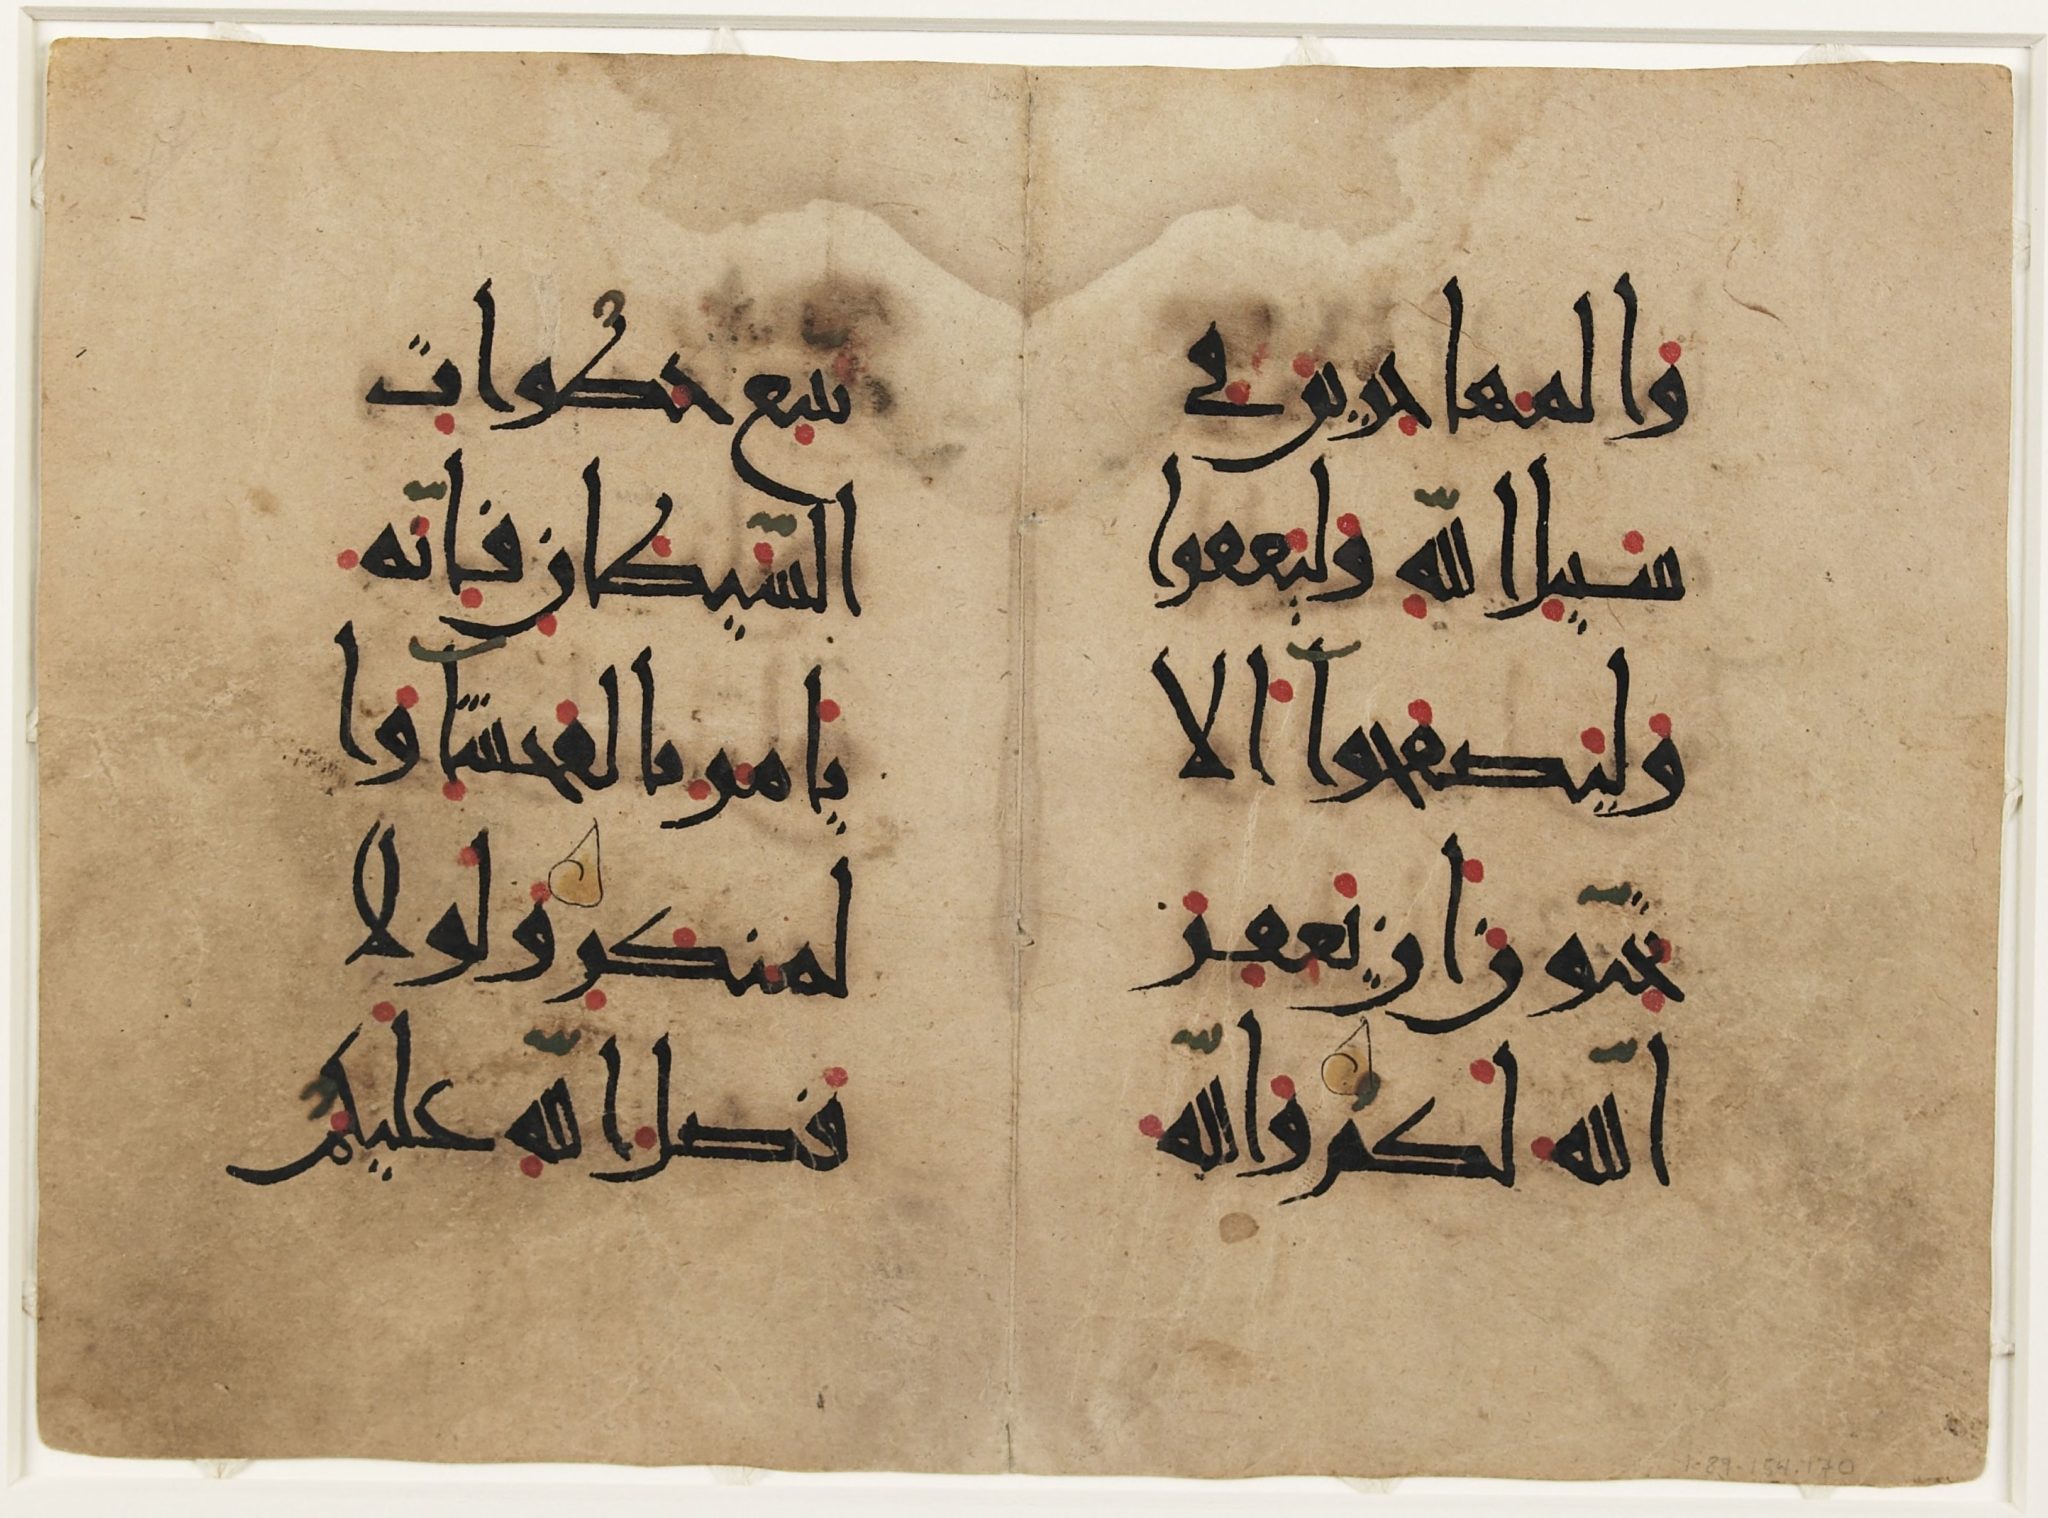 والمهاجرين في
سبيل الله وليعفوا
وليصفحوا ألا
تحبّون أن يغفر
الله لكم والله
يتبع خطوات
الشّيطان فإنّه
يأمر بالفحشا وا
لمنكر ولولا
فضل الله عليكم
1-89.154.170